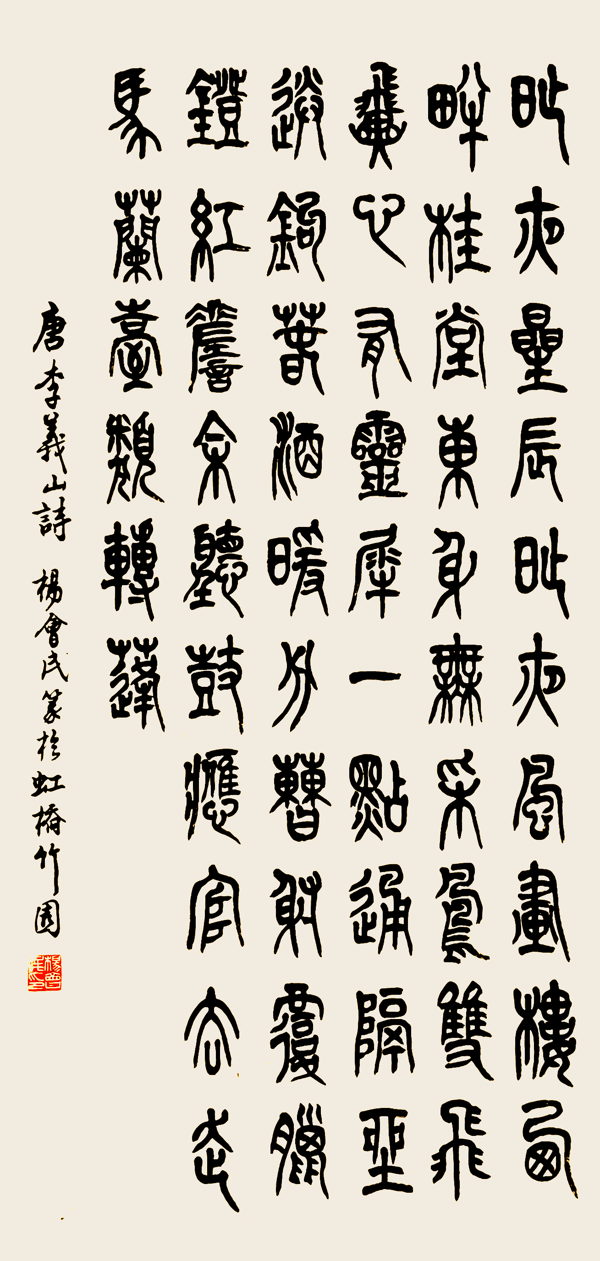 昨夜星辰昨夜風畫樓西
畔桂堂東身無采鳳雙飛
翼心有靈犀一點通隔坐
送鉤春酒暖分曹射覆臘
鐙紅嗟余聽鼓應官去走
馬蘭臺類轉蓬
唐李義山詩 楊會民篆於虹橋竹園
楊會民印